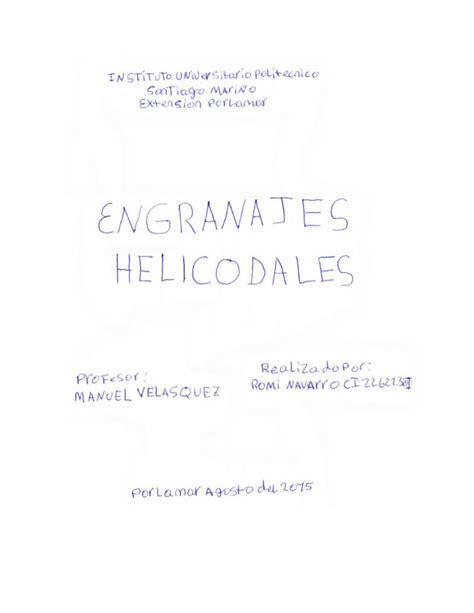 INSTITUTO UNIVERSITARIO POLITECNICO
SANTIAGO MARIÑO
EXTENSION PORLAMAR
ENGRANAJES
HELICODALES
Realizado Por:
Profesor:
ROMI NAVARRO CI
MANUEL VELASQUEZ
PORLAMAR Agosto del 2015